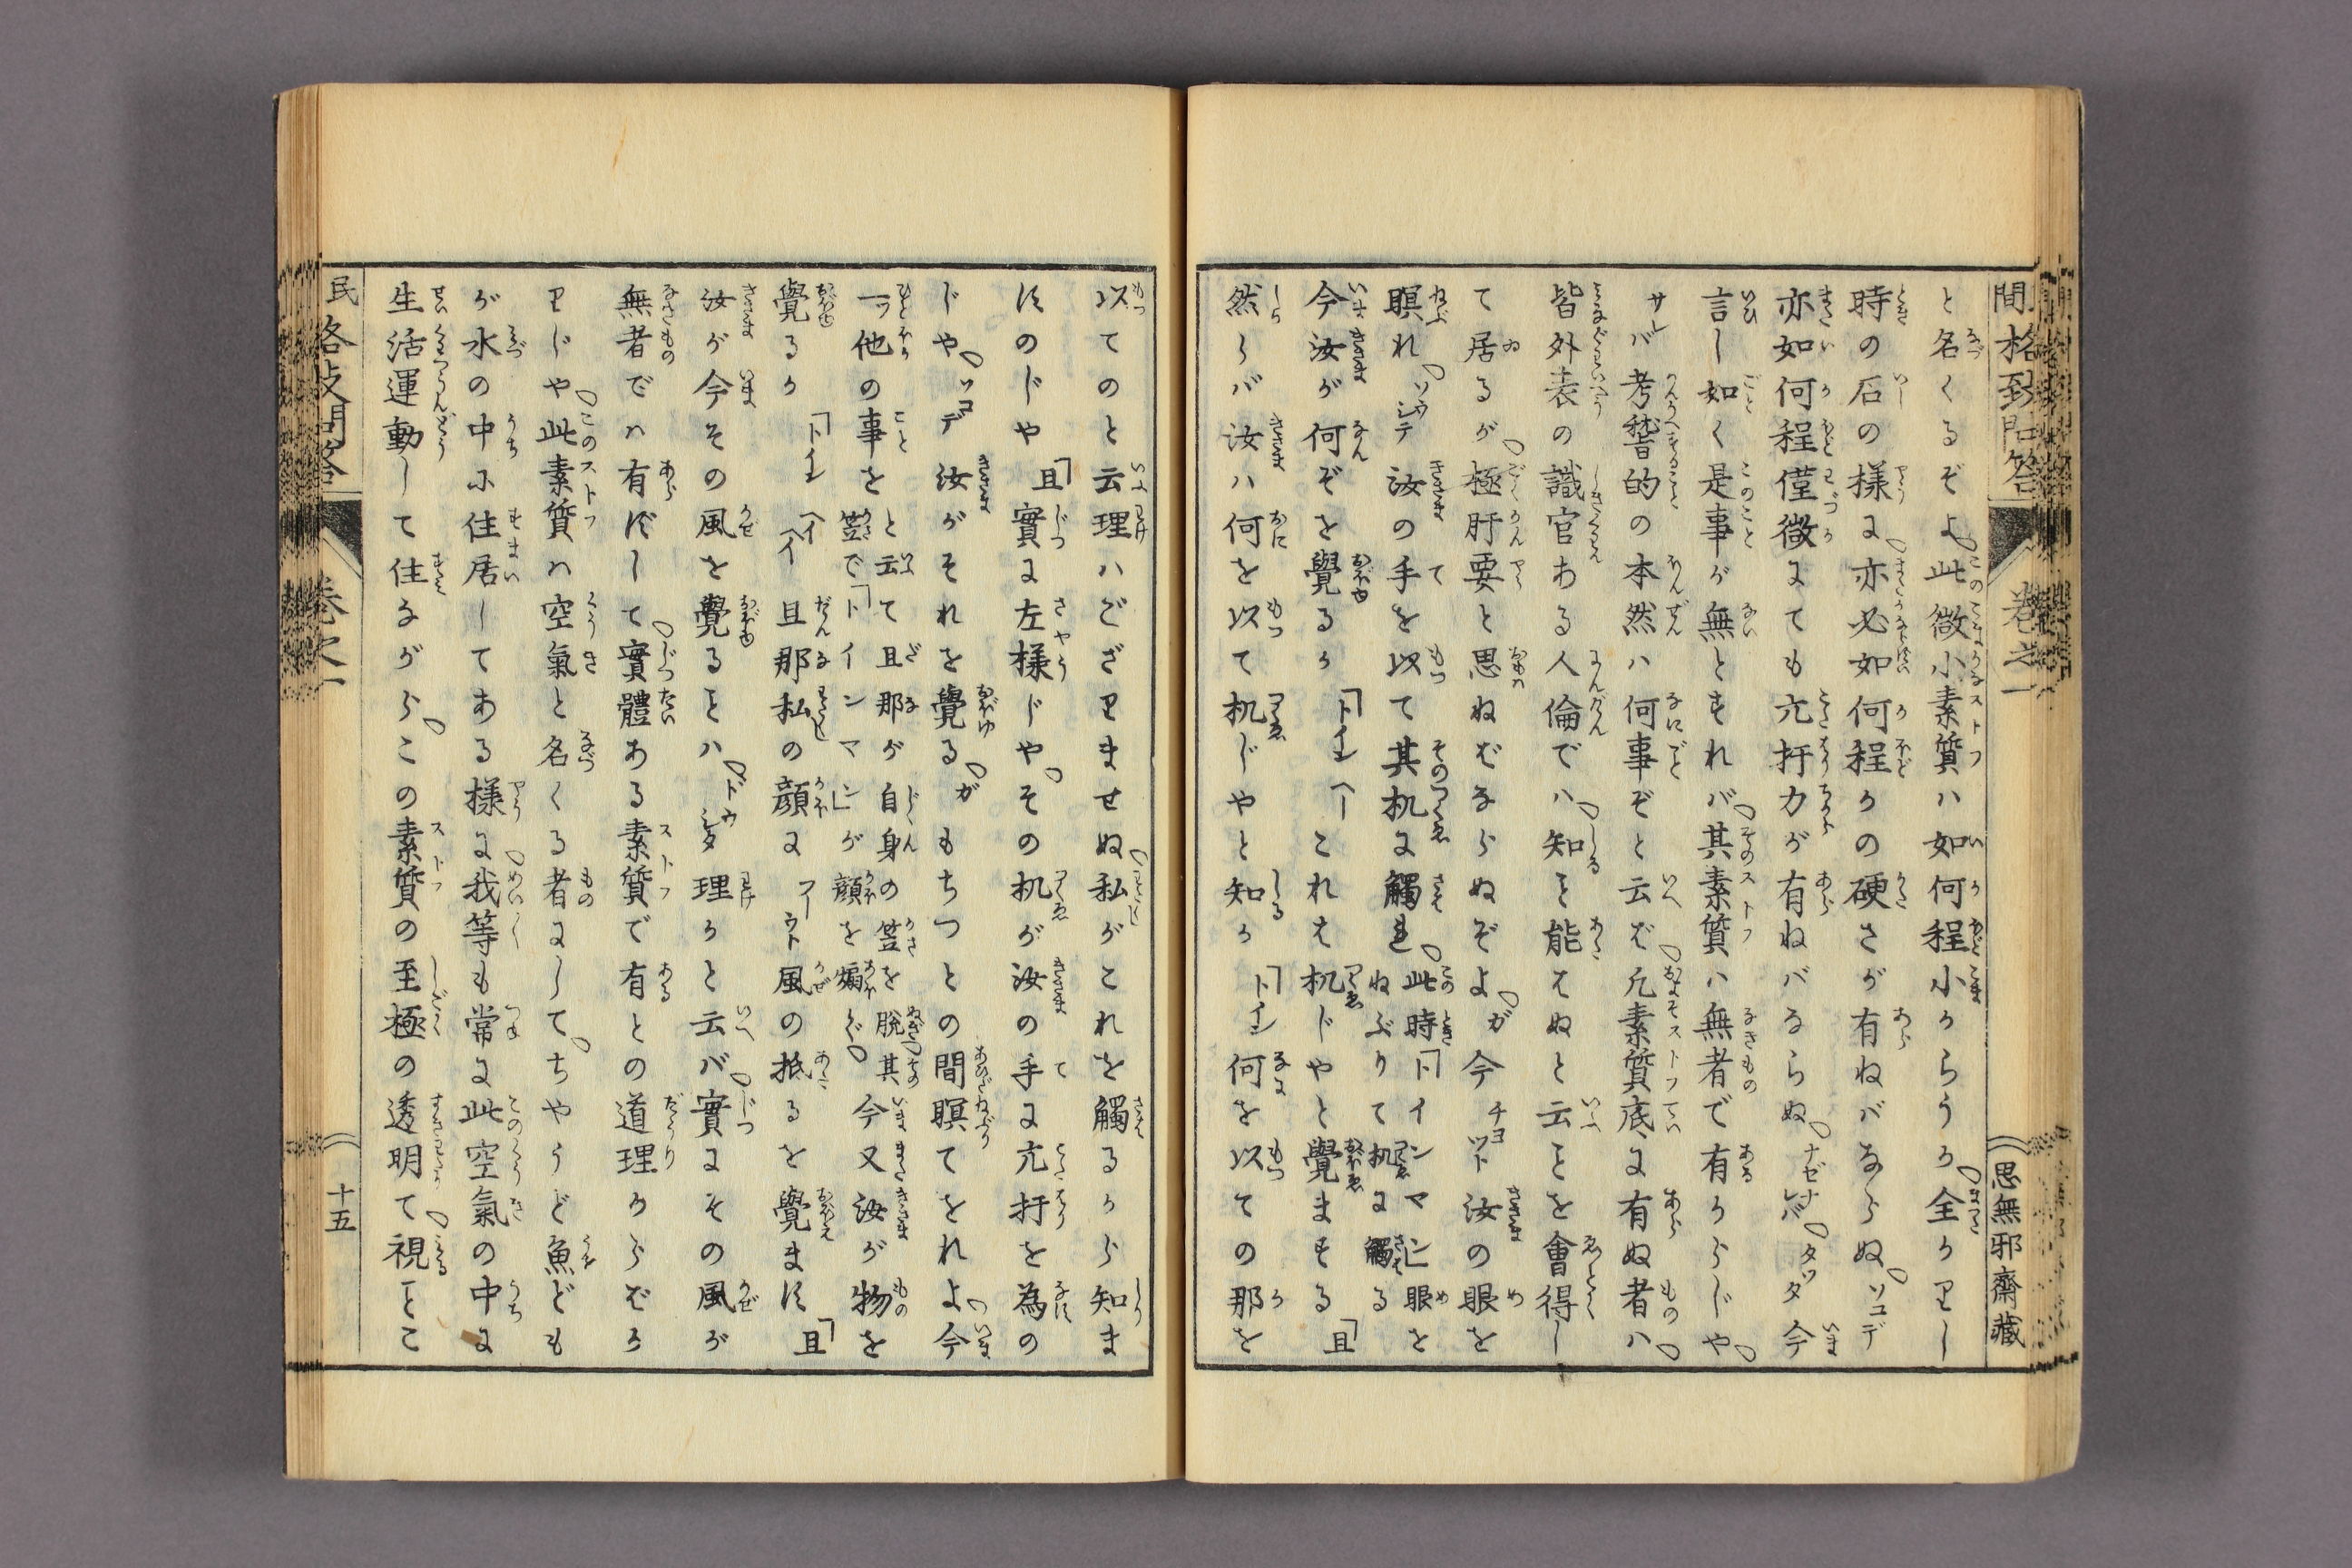 民間格致問答 卷之一 思無邪齋藏
と名くるぞよ此微小素質ハ如何程小からうか全かりし
時の石の様に亦必如何程かの硬さが有ねバならぬソコデ
亦如何程僅微にても亢扞力が有ねバならぬナゼナレバタツタ今
言し如く是事が無とすれバ其素質ハ無者で有からじや
サレバ考䅲的の本然ハ何事ぞと云ば凡素質底に有ぬ者ハ
皆外表の識官ある人倫でハ知こと能はぬと云ことを會得し
て居るが極肝要と思ねばならぬぞよガ今チヨツト汝の眼を
瞑れソウシテ汝の手を以て其机に觸れ此時「トインマン」眼をねぶりて机に觸る
今汝が何ぞを覺るか「トイン」ヘーこれは机じやと覺まする「且
然らバ汝ハ何を以て机じやと知か「トイン」何を以ての那を
以てのと云理ハござりませぬ私がこれを觸るから知ま
すのじや「且」實に左様じやその机が汝の手に亢扞を為の
じやソコデ汝がそれを覺るガもちつとの間瞑てをれよ今
一ツ他の事をと云て且那が自身の笠を脫其笠で「トインマン」が顔を煽ぐ今又汝が物を
覺るか「トイン」ヘイヘイ且那私の顔にフーウト風の抵るを覺ます「且
汝が今その風を覺ることハドウシタ理かと云バ實にその風が
無者でハ有ずして實體ある素質で有との道理からばか
りじや此素質ハ空氣と名くる者にしてちやうど魚ども
が水の中に住居してある様に我等も常に此空氣の中に
生活運動して住ながらこの素質の至極の透明で視こと
民間格致問答 卷之一 十五